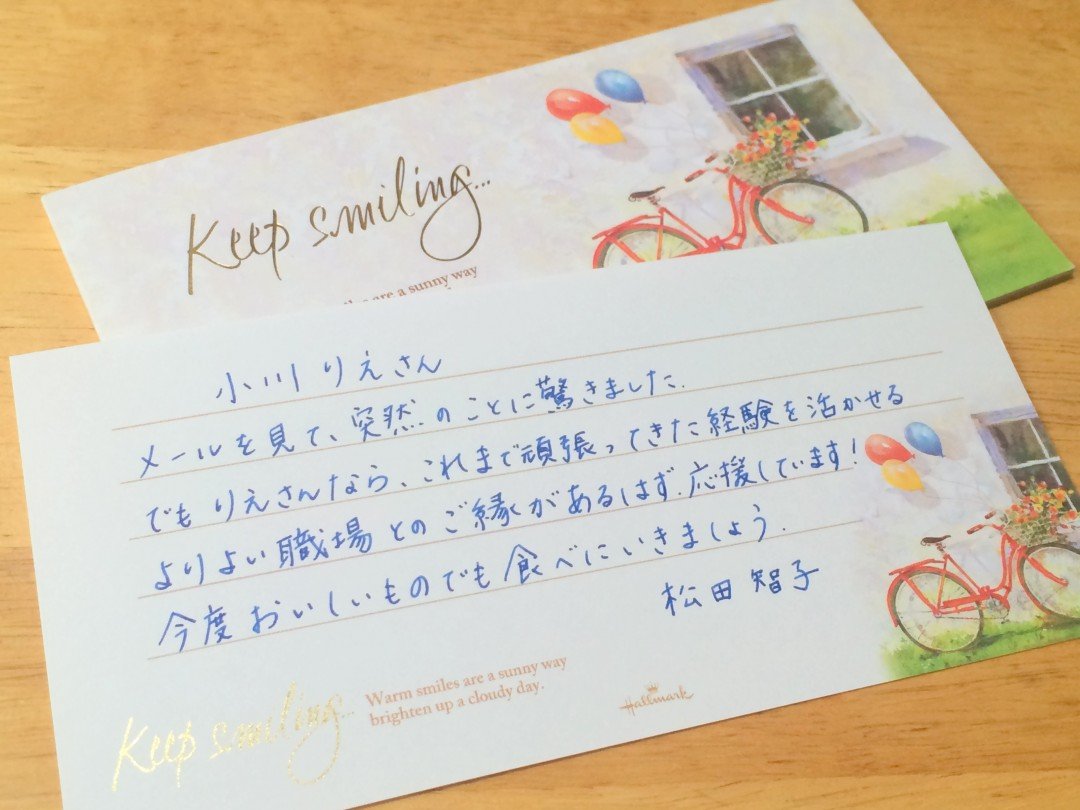 Keep smiling...
are a sunny way
小川りえさん
メールを見て、突然のことに驚きました.
でもりえさんなら、これまで頑張ってきた経験を活かせる
よりよい職場とのご縁があるはず.応援しています!
今度おいしいものでも食べにいきましょう.
松田智子
Keep smiling...
Warm smiles are a sunny way
brighten up a cloudy day.
Hallmark